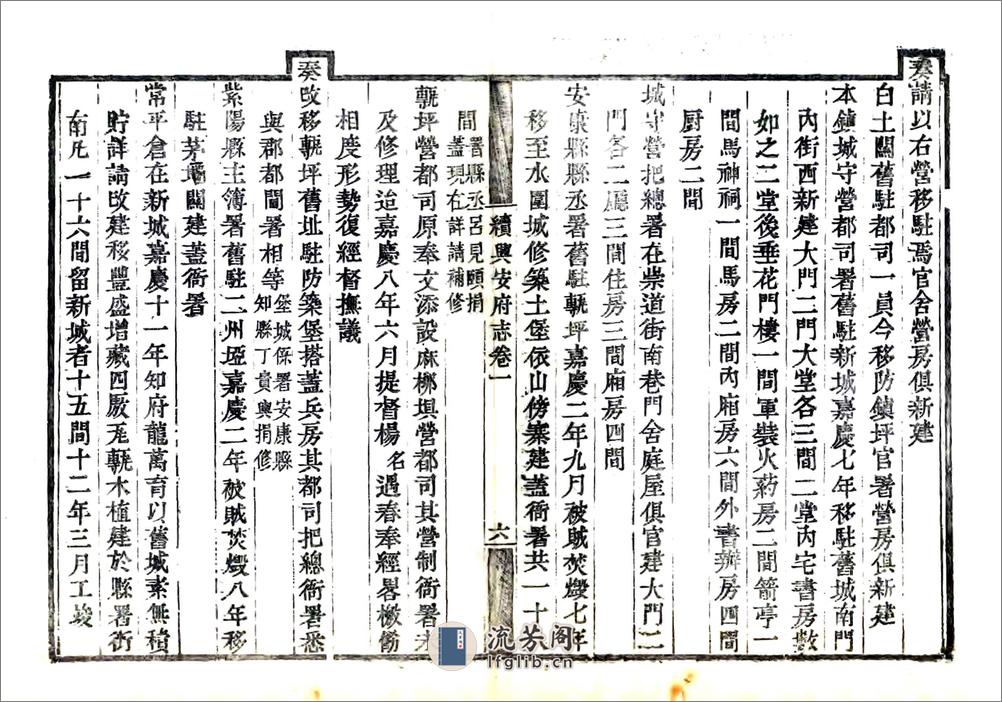 奏請以右營移駐焉官舍營房俱新建
白土關舊駐都司一員今移防鎮坪官署營房俱新建
本鎮城守營都司署舊駐新城嘉慶七年移駐舊城南門
內街西新建大門二門大堂各三間二堂內宅書房數
如之二堂後垂花門樓一間軍裝火葯房二間箭亭一
間馬神祠一間馬房二間內廂房六間外書辦房四間
厨房二間
城守營把總署在崇道街南巷門舍庭屋俱官建大門二
門各二廳三間住房三間廂房四間
安康縣縣丞署舊駐甎坪嘉慶二年九月被賊焚燬七年
移至水圍城修築土堡依山傍寨建蓋衙署共一十
間署縣丞呂見頤捐蓋現在詳請補修
續興安府志卷一
六
甎坪營都司原奉文添設麻柳壩營都司其營制衙署未
及修理迨嘉慶八年六月提督楊名遇春奉經畧檄飭
相度形勢復經督撫議
奏改移甎坪舊址駐防築堡搭蓋兵房其都司把總衙署悉
與郡都閫署相等堡城係署安康縣知縣丁貴興捐修
紫陽縣主簿署舊駐二州埡嘉慶二年被賊焚燬八年移
駐茅壩關建蓋衙署
常平倉在新城嘉慶十一年知府龍萬育以舊城素無積
貯詳請改建移豐盛增藏四厫瓦甎木植建於縣署街
南凡一十六間留新城者十五間十二年三月工竣
流芳阁
lfglib.cn